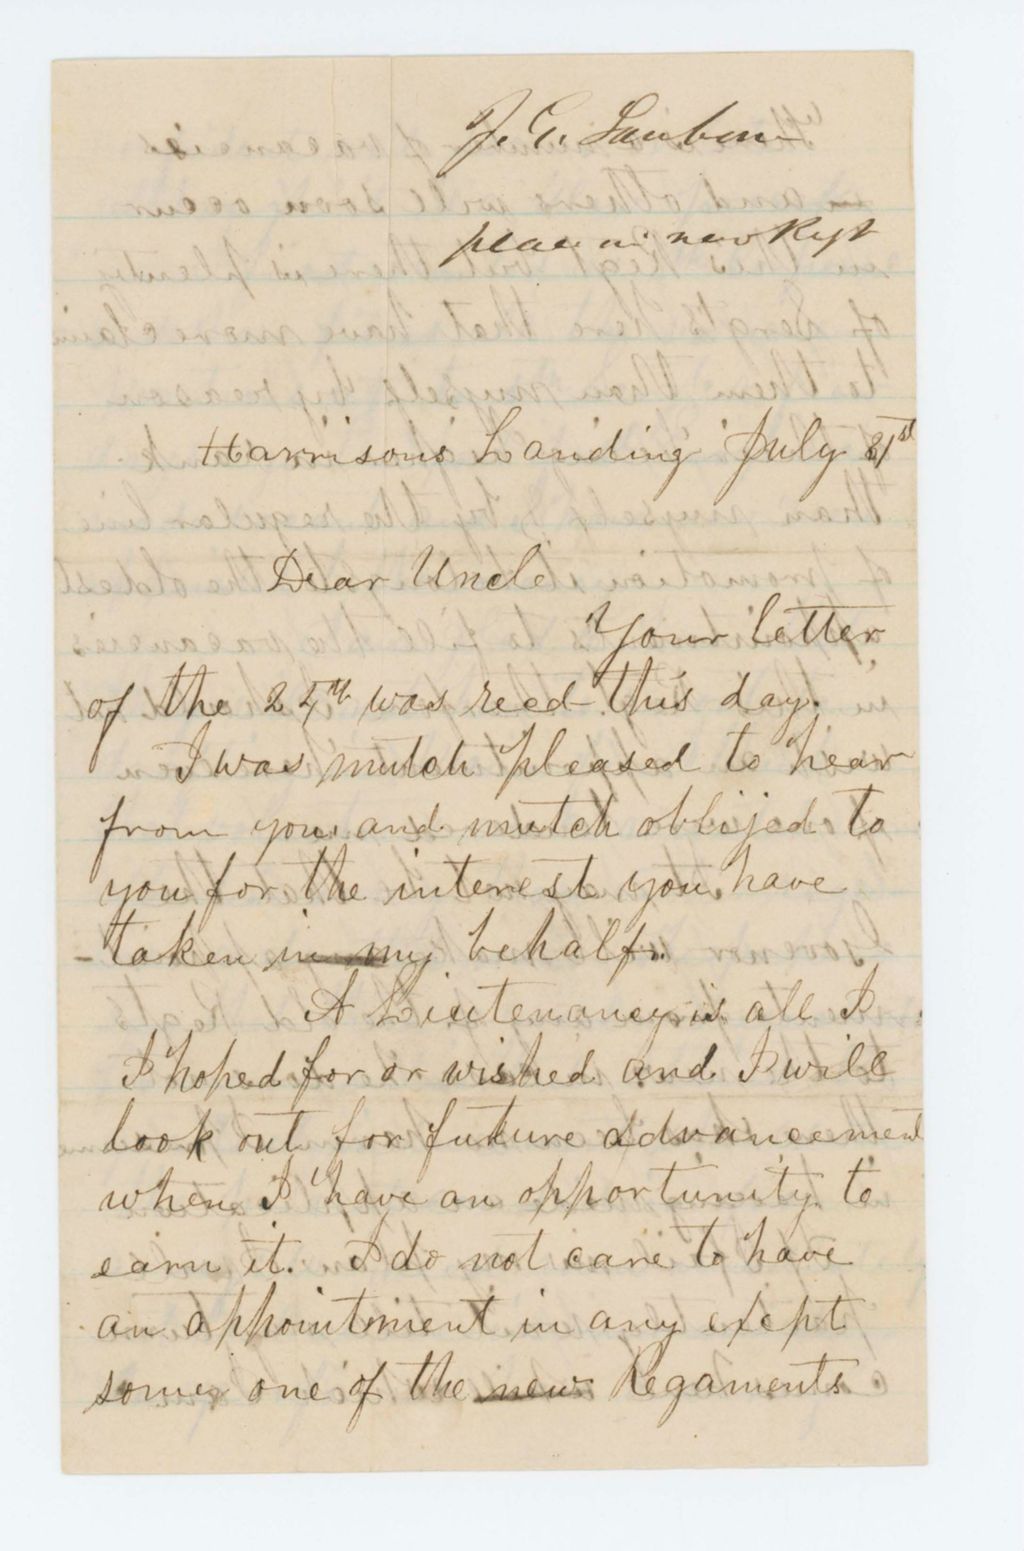 J. G.
place in new Regt
Harrisons Landing July 31st
Dear Uncle
Your letter
of the 25th was recd this day.
I was mutch pleased to hear
from you and mutch oblijed to
you for the interest you have
taken in my behalf.
A Lieutenancy is all I
I hoped for or wished and I will
look out for future advancement
when I have an opportunity to
earn it. I do not care to have
an appointment in any exept
some one of the new Regaments